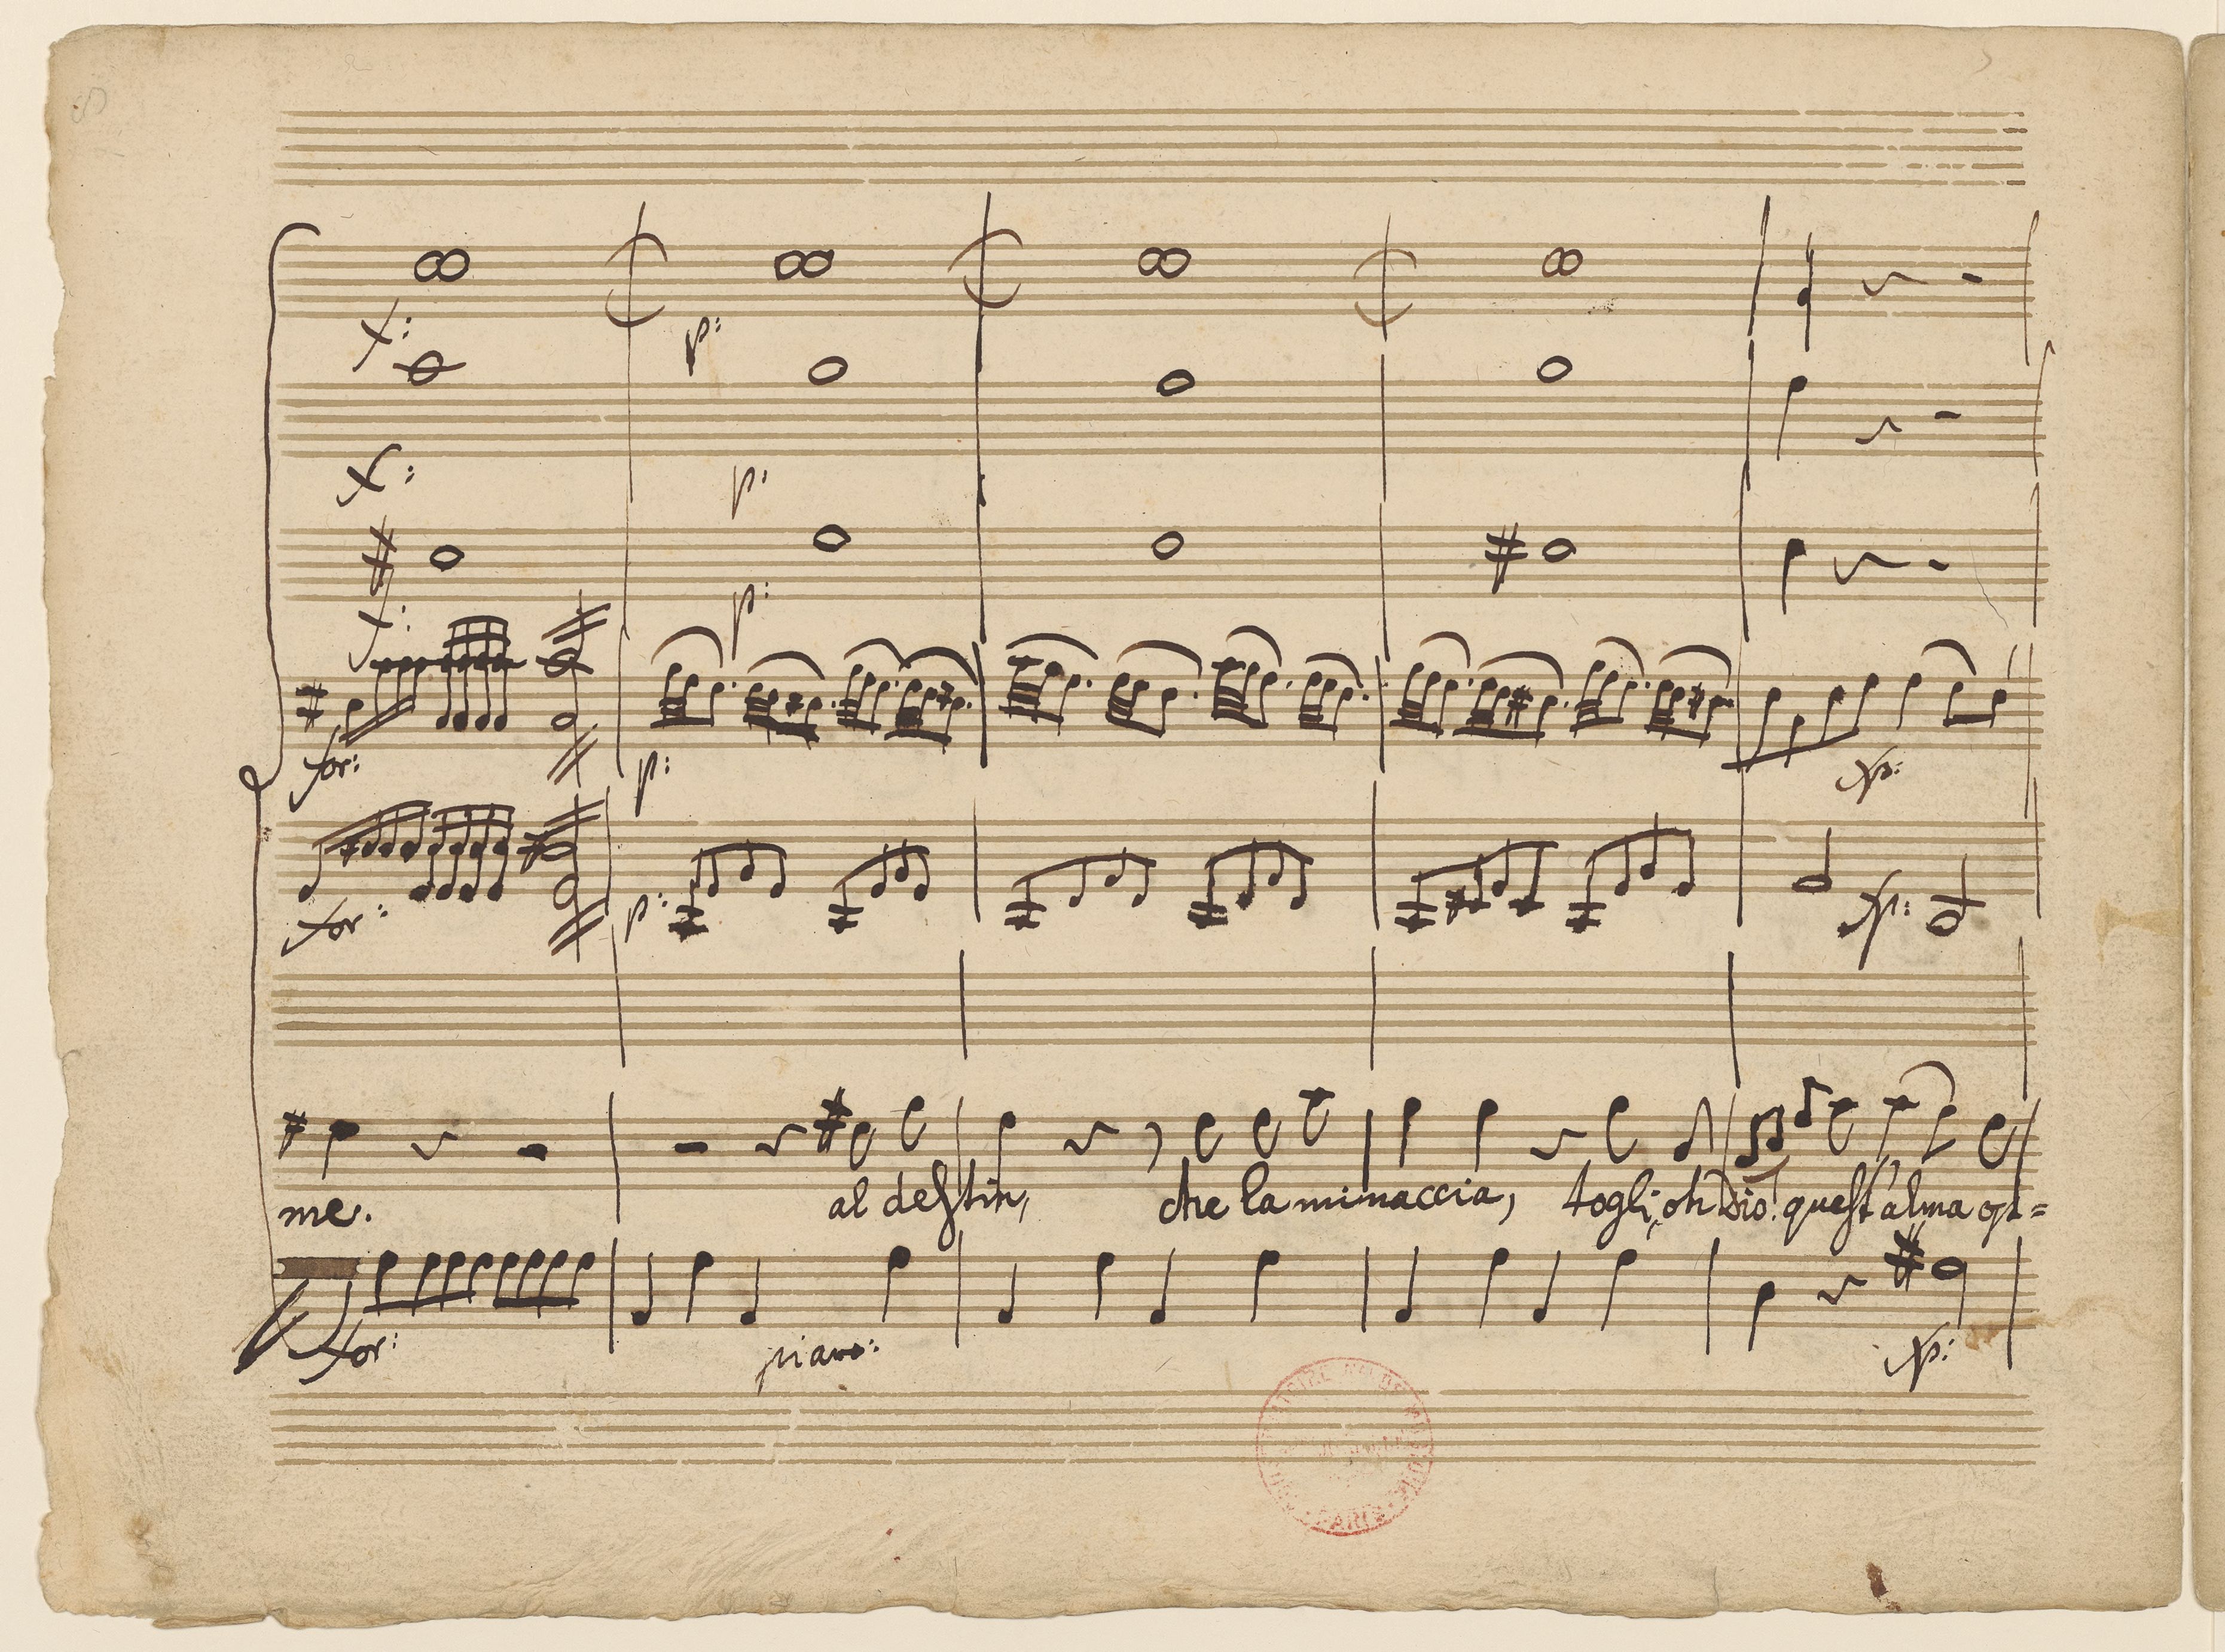 f: p:
f: p:
f: p:
for: p: fp:
for: p: fp:
me. al destin, che la minaccia, togli, oh Dio! quest'alma op=
for: piano: fp:
PARIS